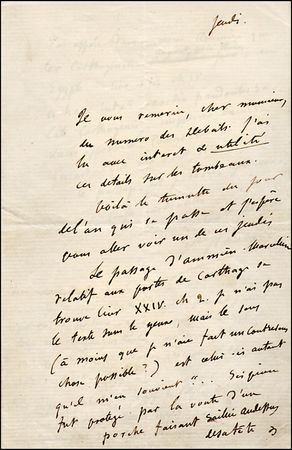 Jeudi.
Je vous remercie, cher monsieur,
du numero des Debats. J'ai
lu avec interet & utilité
ces details sur les tombeaux.
Voilà le tumulte du jour
de l'an qui se passe et j'espère
vous aller voir un de ces jeudis
Le passage d'ammien-Marcellin
relatif aux portes de Carthage se
trouve livr XXIV. ch 2. je n'ai pas
le texte sous les yeux, mais le sens
(à moins que je n'aie fait un contresens
chose possible?) est celui-ci autant
qu'il m'en souvient "... Scipion
fut protégé par la voute d'un
porche faisant saillie au dessus
de sa tete &